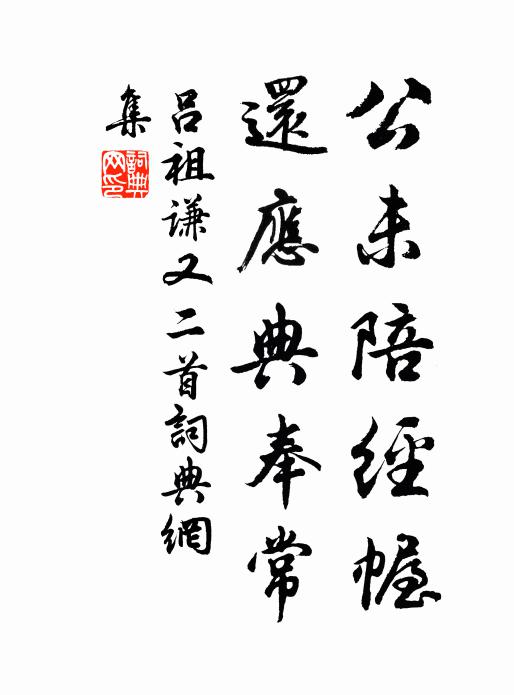 公未陪經幄
還應典奉常
呂祖謙又二首詞典網
集
詞典網印